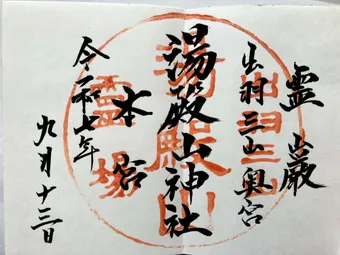 霊巌
出羽三山奥宮
湯殿山神社
本宮
令和七年
九月十三日
出羽三山
霊場